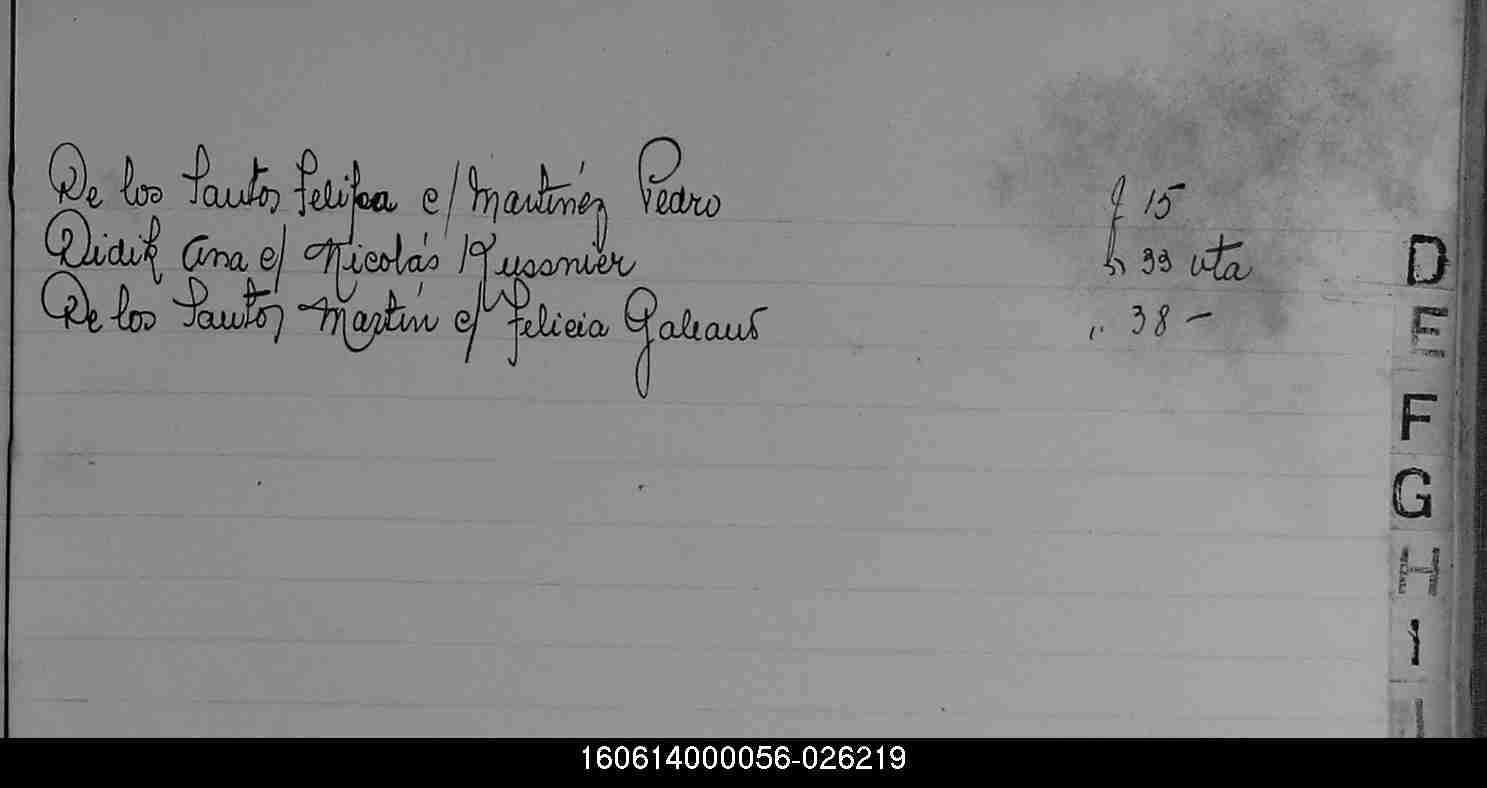 De los Santos Felipa c/ Martínez Pedro f 15
Didik Ana c/ Nicolás Kussnier " 33 vta
De los Santos Martín c/ Felicia Galeano " 38 -
D
E
F
G
H
I
160614000056-026219